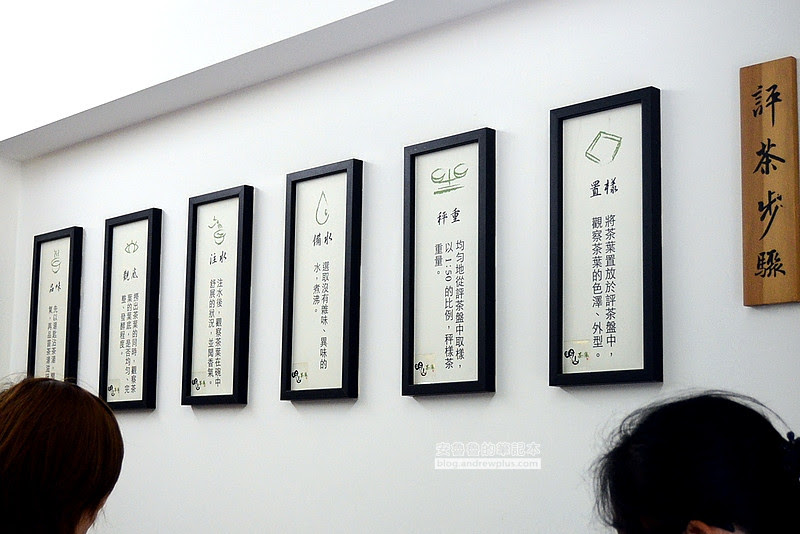 評茶步驟
置樣
將茶葉置放於評茶盤中，
觀察茶葉的色澤、外型。
秤重
均勻地從評茶盤中取樣，
以 1:50 的比例，秤樣茶
重量。
備水
選取沒有雜味、異味的
水，煮沸。
注水
注水後，觀察茶葉在碗中
舒展的狀況，並聞香氣。
觀底
撈出茶葉的同時，觀察茶
葉的葉底，是否均勻、完
整，發酵程度。
品味
安魯魯的筆記本
blog.andrewplus.com